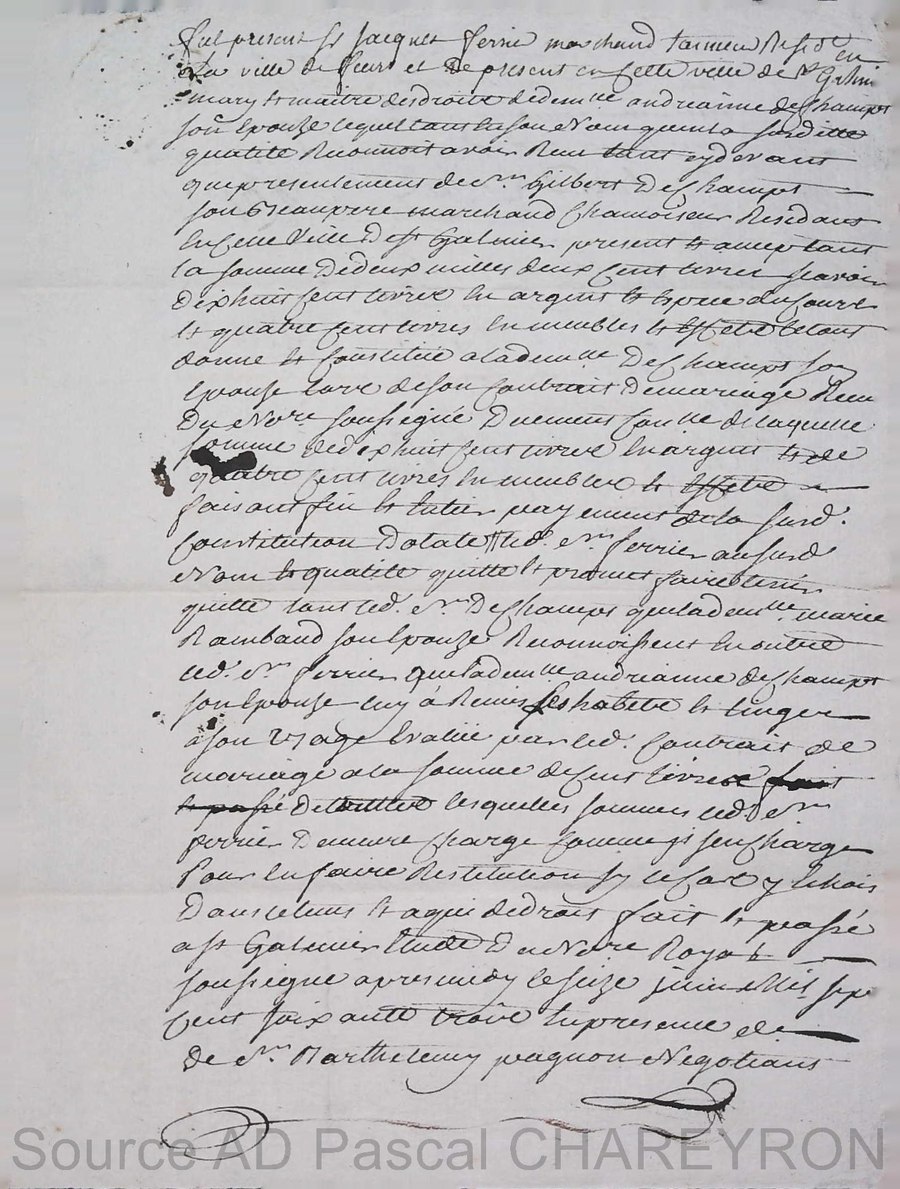 fut present Sr jacques ferrier marchand tanneur Resid.t en
La ville de feurs et de present en cette ville de St Galmier
mary et maitre des droits de dem.lle andrianne deschamps
son Epouze lequel tant en son Nom qu'en la susditte
qualité Reconnoit avoir Receu tant cy devant
que presentement de Sr. Gilbert Deschamps
son Beaupere marchand Chamoiseur Residant
en cette Ville De St Galmier present et acceptant
la somme de deux milles deux cent livres scavoir
dixhuit cent livres en argent et Espece du Cours
et quatre cent livres en meubles et Effets le tout
donné et Constitué a lade.lle Deschamps son
Epouse lors de son Contrait de mariage Receu
Du No.re soussigné Duement Con.lle de laquelle
somme de dixhuit cent livres en argent et de
quatre cent livres en meubles et Effets
faisant fin et entier payement de la susd.
Constitution Dotale led. Sr. ferrier aususd.
Nom et qualité quitte et promet faire tenir
quitte tant led. Sr. Deschamps que lade.lle marie
Raimbaud son Epouze Reconnoissent En outre
led. Sr. ferrier que lade.lle andrianne deschamps
son Epouze luy à Remis ses habits et linges
à son Usage Evalué par led. Contrait de
mariage a la somme de cent livres fait
et passé lesquelles sommes led. Sr.
ferrier Demeure Chargé Comme il s'en Charge
Pour en faire Restitution sy le Cas y Echois
Dans le tems et a qui de droit fait et passé
a St Galmier Etude Du No.re Royal
soussigné apres midy le seize juin Mil sept
cent soixante trois En presence de
de Sr. Barthelemy pagnon Negotiant
Source AD Pascal CHAREYRON